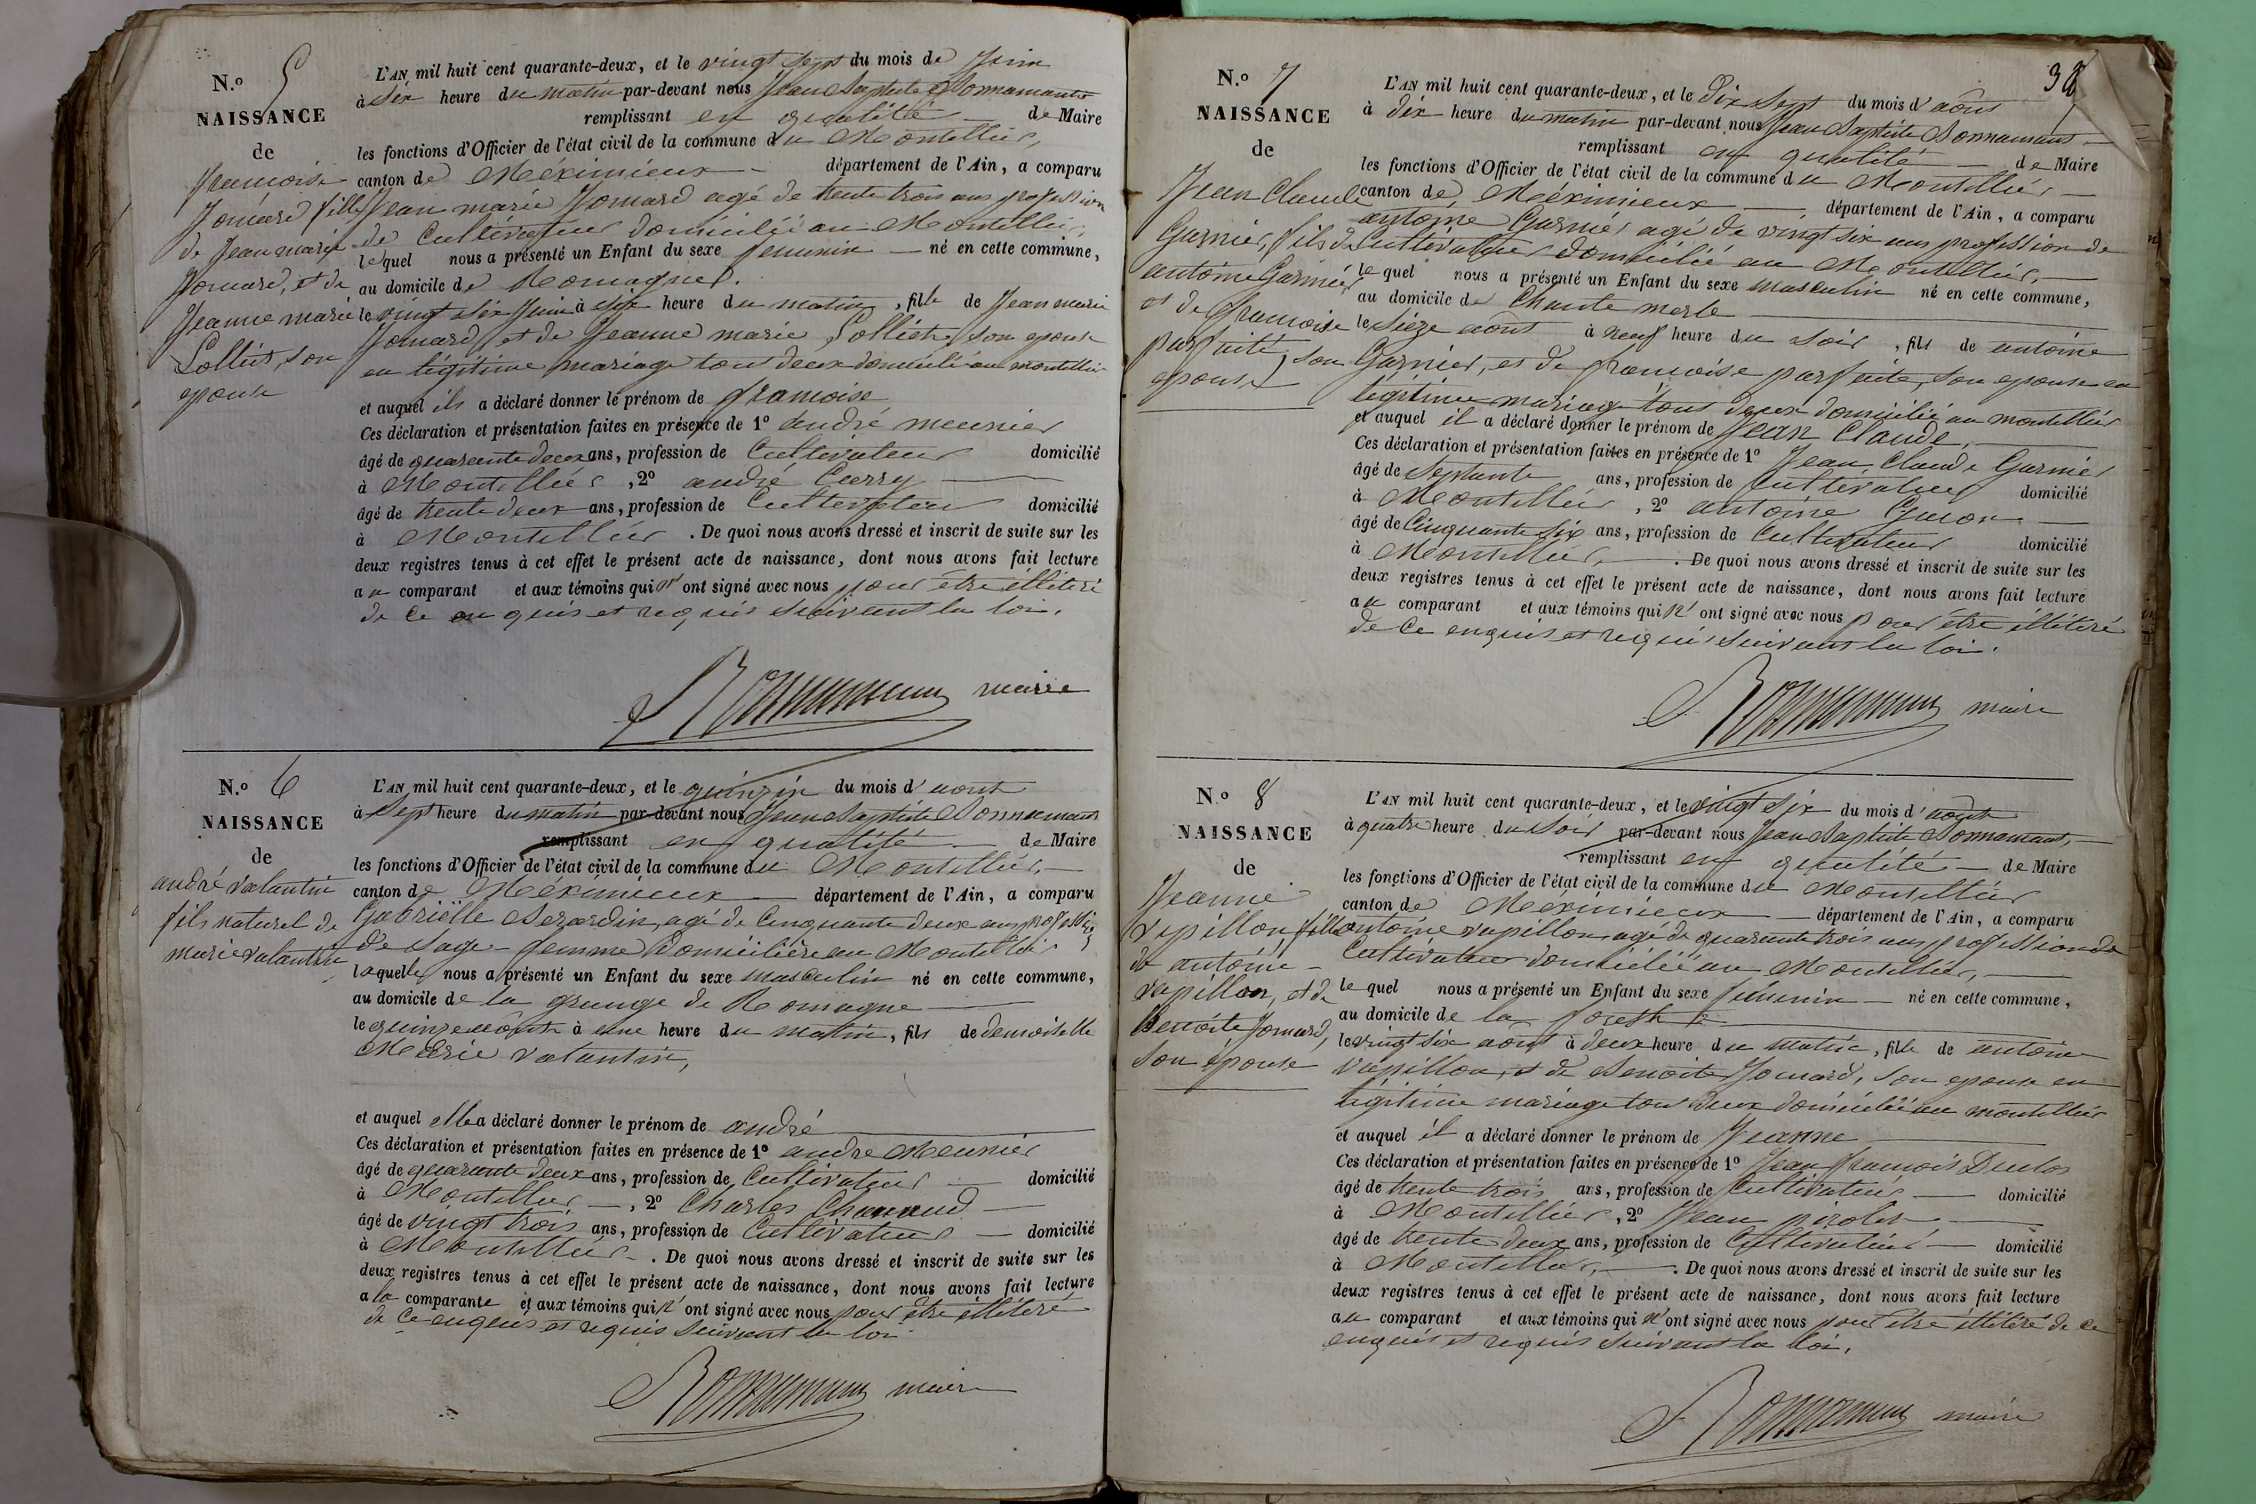 N.o 5
NAISSANCE
de
francoise
Jomard fille
de Jean marie
Jomard, et de
Jeanne marie
Solliet, son
epouse
L'AN mil huit cent quarante-deux, et le vingt sept du mois de Juin
à six heure du matin par-devant nous Jean Baptiste Bonnamant
remplissant en qualité de Maire
les fonctions d'Officier de l'état civil de la commune du Montellier,
canton de Méximieux département de l'Ain, a comparu
Jean marie Jomard agé de trente trois ans profession
de Cultivateur domicilié au Montellier,
lequel nous a présenté un Enfant du sexe feminin né en cette commune,
au domicile de Romagne.
le vingt six Juin à six heure du matin, fille de Jean marie
Jomard et de Jeanne marie Solliet, son epouse
en légitime mariage tous deux domicilié au montellier
et auquel il a déclaré donner le prénom de francoise
Ces déclaration et présentation faites en présence de 1º andré meunier
âgé de quarante deux ans, profession de Cultivateur domicilié
à Montellier, 2º andré Carry
âgé de trente deux ans, profession de Cultivateur domicilié
à Montellier. De quoi nous avons dressé et inscrit de suite sur les
deux registres tenus à cet effet le présent acte de naissance, dont nous avons fait lecture
au comparant et aux témoins qui n' ont signé avec nous pour être illiteré
de ce enquis et requis suivant la loi.
Bonnamant maire
N.o 6
NAISSANCE
de
andré valantin
fils naturel de
marie valantin
L'AN mil huit cent quarante-deux, et le quinze du mois d'aout
à sept heure du matin par-devant nous Jean Baptiste Bonnamant
remplissant en qualité de Maire
les fonctions d'Officier de l'état civil de la commune du Montellier,
canton de Méximieux département de l'Ain, a comparu
Gabriëlle agé de Cinquante deux ans profession
de Sage-femme domicilière au Montellier
laquelle nous a présenté un Enfant du sexe masculin né en cette commune,
au domicile de la grange de Romagne
le quinze aôut à une heure du matin, fils de demoiselle
Marie valantin,
et auquel elle a déclaré donner le prénom de andré
Ces déclaration et présentation faites en présence de 1º andré Meunier
âgé de quarante deux ans, profession de Cultivateur domicilié
à Montellier, 2º Charles Channud
âgé de vingt trois ans, profession de Cultivateur domicilié
à Montellier. De quoi nous avons dressé et inscrit de suite sur les
deux registres tenus à cet effet le présent acte de naissance, dont nous avons fait lecture
a la comparante et aux témoins qui n' ont signé avec nous pour être illiteré
de ce enquis et requis suivant la loi
Bonnamant maire
38
N.o 7
NAISSANCE
de
Jean Claude
Garnier, fils de
antoine Garnier
et de francoise
parfaite, son
epouse
L'AN mil huit cent quarante-deux, et le Dix Sept du mois d'aôut
à dix heure du matin par-devant nous Jean Baptiste Bonnamant
remplissant en qualité de Maire
les fonctions d'Officier de l'état civil de la commune du Montellier
canton de Méximieux département de l'Ain, a comparu
antoine Garnier agé de vingt six ans profession de
Cultivateur domicilié au Montellier,
lequel nous a présenté un Enfant du sexe masculin né en cette commune,
au domicile de Chante merle
le Sieze aôut à neuf heure du soir, fils de antoine
Garnier, et de francoise parfaite, son epouse en
légitime mariage tous deux domicilié au montellier
et auquel il a déclaré donner le prénom de Jean Claude,
Ces déclaration et présentation faites en présence de 1º Jean Claude Garnier
âgé de Septante ans, profession de Cultivateur domicilié
à Montellier, 2º antoine Guion
âgé de Cinquante six ans, profession de Cultivateur domicilié
à Montellier. De quoi nous avons dressé et inscrit de suite sur les
deux registres tenus à cet effet le présent acte de naissance, dont nous avons fait lecture
au comparant et aux témoins qui n' ont signé avec nous pour être illiteré
de ce enquis et requis suivant la loi.
Bonnamant maire
N.o 8
NAISSANCE
de
Jeanne
vapillon, fille
de antoine
vapillon, et de
Benoite Jomard,
son épouse
L'AN mil huit cent quarante-deux, et le vingt six du mois d'aôut
à quatre heure du soir par-devant nous Jean Baptiste Bonnamant,
remplissant en qualité de Maire
les fonctions d'Officier de l'état civil de la commune du Montellier
canton de Méximieux département de l'Ain, a comparu
antoine vapillon agé de quarante trois ans profession de
Cultivateur domicilié au Montellier,
lequel nous a présenté un Enfant du sexe féminin né en cette commune,
au domicile de la
le vingt six aôut à deux heure du matin, fille de antoine
vapillon, et de Benoite Jomard, son epouse en
légitime mariage tous deux domicilié au montellier
et auquel il a déclaré donner le prénom de Jeanne
Ces déclaration et présentation faites en présence de 1º Jean francois Duclos
âgé de trente trois ans, profession de Cultivateur domicilié
à Montellier, 2º Jean pirolet
âgé de trente deux ans, profession de Cultivateur domicilié
à Montellier,. De quoi nous avons dressé et inscrit de suite sur les
deux registres tenus à cet effet le présent acte de naissance, dont nous avons fait lecture
au comparant et aux témoins qui n' ont signé avec nous pour être illiteré de ce
enquis et requis suivant la loi.
Bonnamant maire